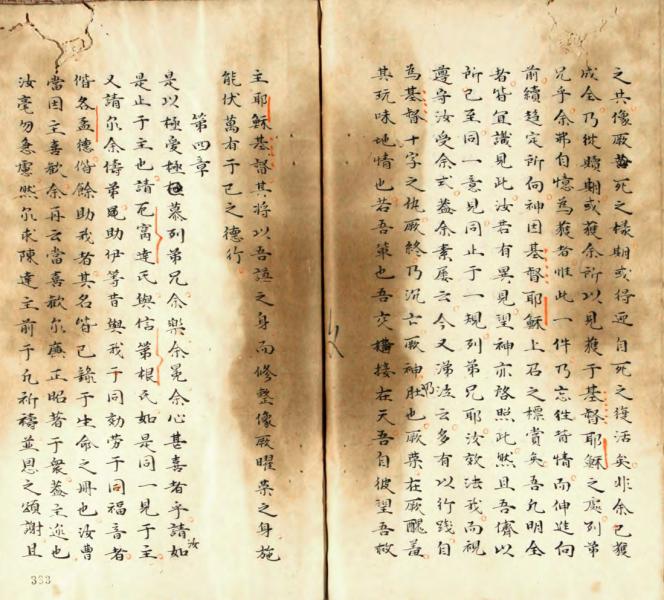 之共像厥死之様期或得通自死之復活矣非余已獲
成全乃從贖期或獲余所以見獲于基督耶穌之處列弟
兄乎余弗自憶為獲者惟此一件乃忘往背情而伸進向
前續趋定所向神因基督耶穌上召之標賞矣吾凡明全
者皆宜識見此汝若有異見望神亦啓照此然且吾儕以
所已至同一意見同止于一規列弟兄耶汝效法我而視
遵守汝受余式蓋余素屢云今又涕泣云多有以行踐自
為基督十字之仇厥終乃沉亡厥神乃肚也厥榮在厥醜羞
其玩味地情也若吾等也吾交搆接在天吾自彼望吾救
主耶穌基督其將以吾誣之身而修整像厥曜榮之身施
能伏萬有于己之德行
第四章
是以極愛極慕列弟兄余樂余冕余心甚喜者乎請汝如
是止于主也請厄寓達氏與信第根氏如是同一見于主
又請尔余儔弟冕助伊等昔與我于同効劳于同福音者
偕各孟德偕餘助我者其名皆已錄于生命之冊也汝曹
當因主喜歡余再云當喜歡尔廉正昭著于衆蓋主邇也
汝毫勿急慮然尔求陳達主前于凡祈禱並恩之頌謝且
333